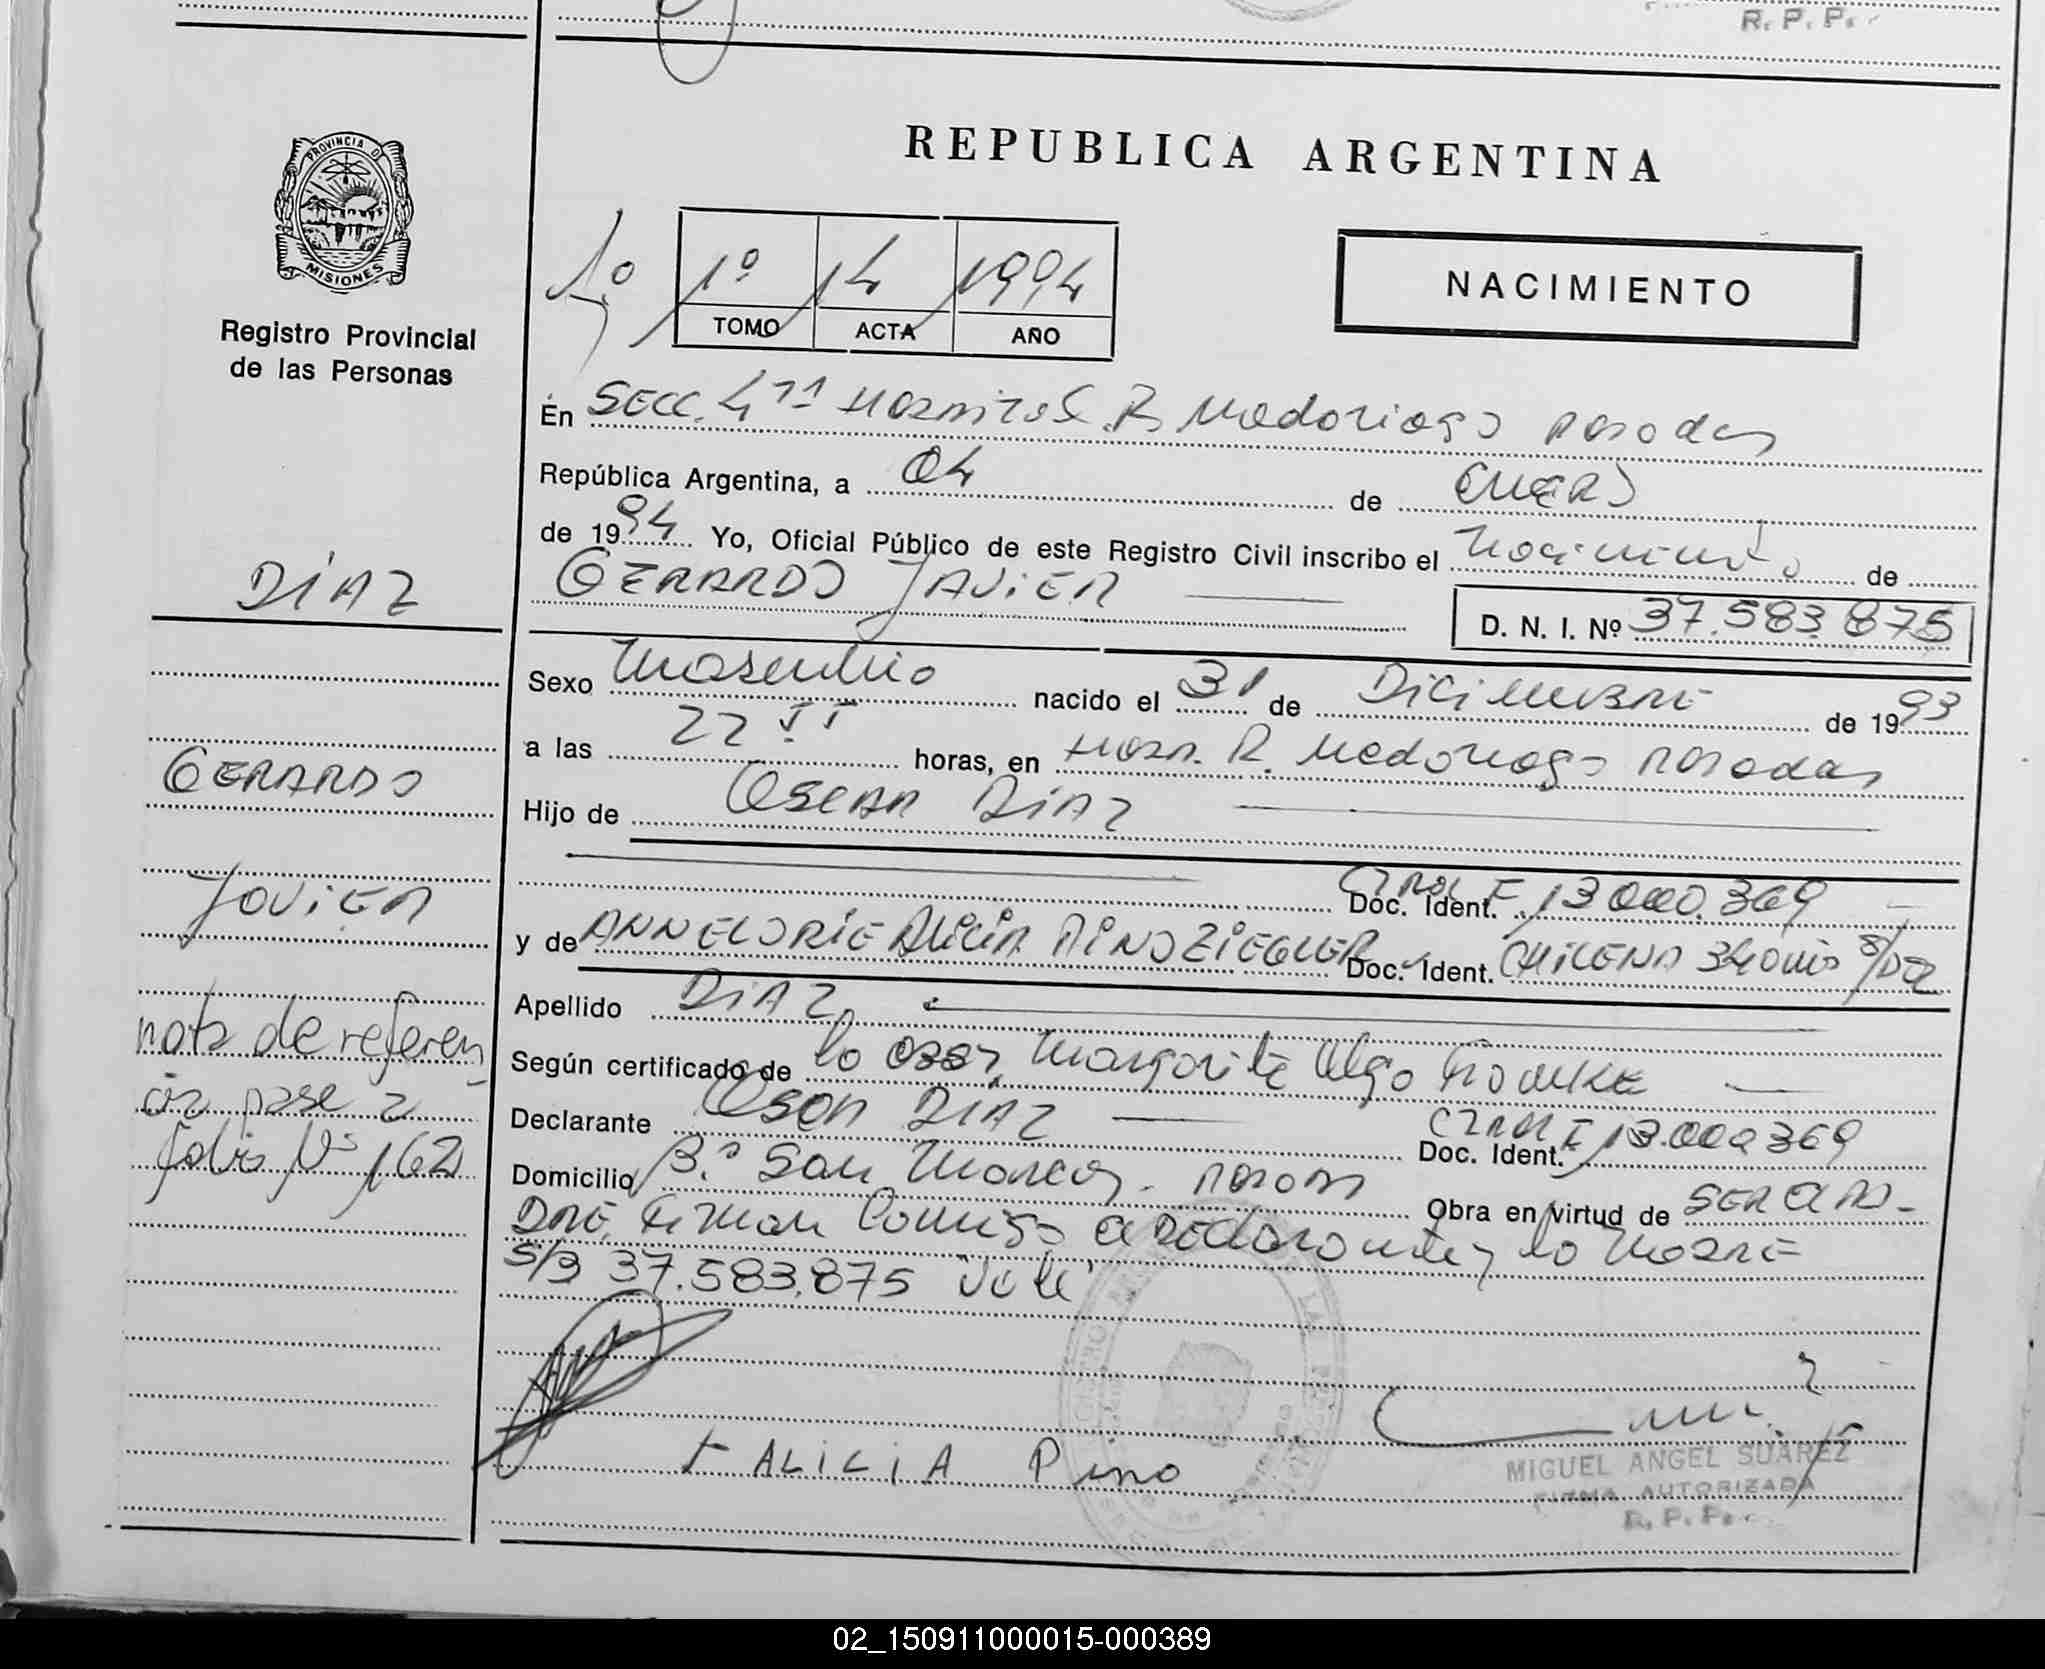 R. P. P.
REPUBLICA ARGENTINA
PROVINCIA D
MISIONES
Registro Provincial
de las Personas
1º 1º 14 1994
TOMO ACTA AÑO
NACIMIENTO
En SECC. 4ta Hospital R. Madariaga Posadas
República Argentina, a 04 de ENERO
de 1994 Yo, Oficial Público de este Registro Civil inscribo el Nacimiento de
GERARDO JAVIER D. N. I. Nº 37.583.875
DIAZ
Sexo Masculino nacido el 31 de Diciembre de 1993
a las 22 horas, en Hosp. R. Madariaga Posadas
GERARDO
Hijo de OSCAR DIAZ
JAVIER
Doc. Ident. 13.000.369
y de ANNELORIE ALICIA PINO ZIEGLER Doc. Ident. CHILENA 34 años s/DOC
Apellido DIAZ
nota de referen
cia pase a
folio Nº 162
Según certificado de la Margarita Olga
Declarante Oscar DIAZ Doc. Ident. 13.000.369
Domicilio Bº San Marcos - Posadas Obra en virtud de SER PA-
DRE, Firman conmigo el declarante y la MADRE
S/B 37.583.875 Vale
ALICIA Pino
MIGUEL ANGEL SUAREZ
FIRMA AUTORIZADA
R. P. P.
02_150911000015-000389